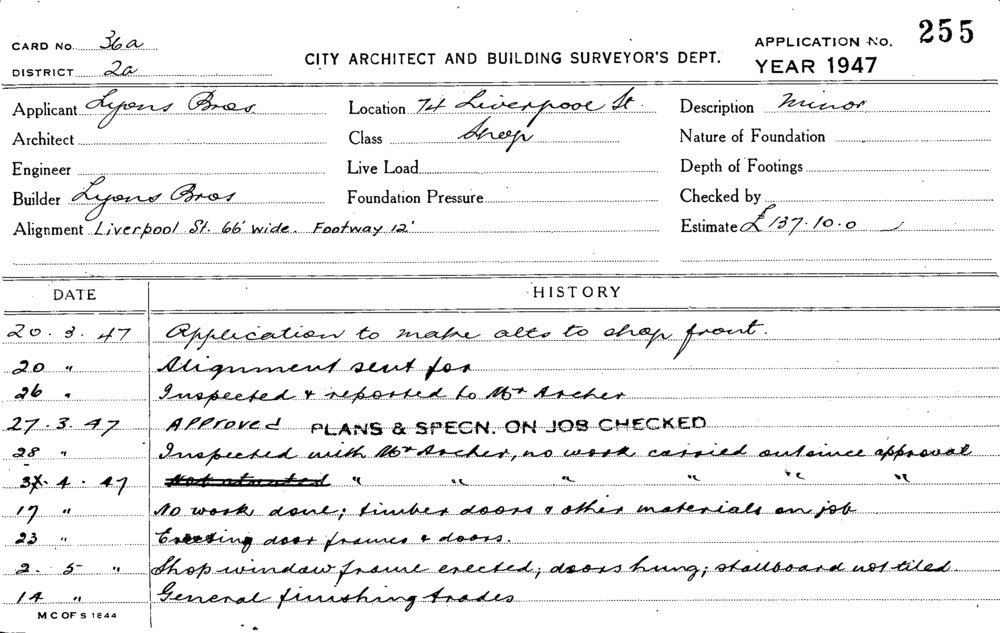 CARD No. 36a
DISTRICT 2a
CITY ARCHITECT AND BUILDING SURVEYOR'S DEPT.
APPLICATION No. 255
YEAR 1947
Applicant Lyons Bros. Location 74 Liverpool St. Description Minor
Architect Class Shop Nature of Foundation
Engineer Live Load Depth of Footings
Builder Lyons Bros Foundation Pressure Checked by
Alignment Liverpool St. 66' wide. Footway 12' Estimate £137.10.0
DATE HISTORY
20. 3. 47 Application to make alts to shop front.
20 " Alignment sent for
26 " Inspected & reported to Mr Archer
27. 3. 47 Approved PLANS & SPECN. ON JOB CHECKED
28 " Inspected with Mr Archer, no work carried out since approval
4. 47 Not started " " " " " "
17 " No work done; timber doors & other materials on job
23 " Erecting door frames & doors.
2. 5 " Shop window frame erected; doors hung; stallboard not tiled.
14 " General finishing trades
M C OF S 1844